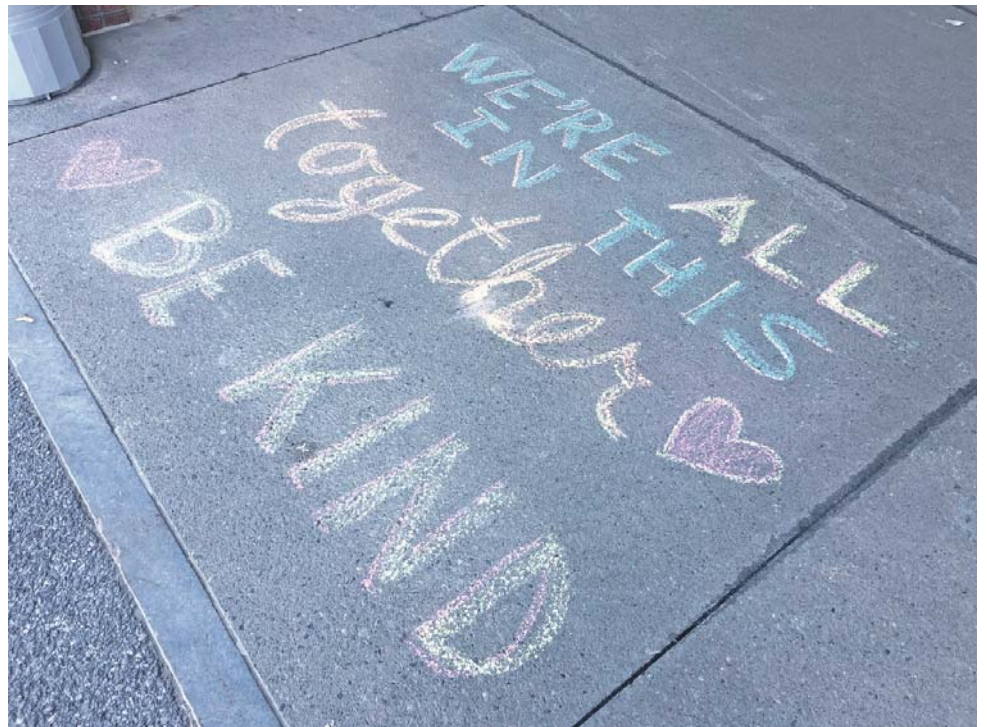 WE'RE ALL
IN THIS
together
BE KIND